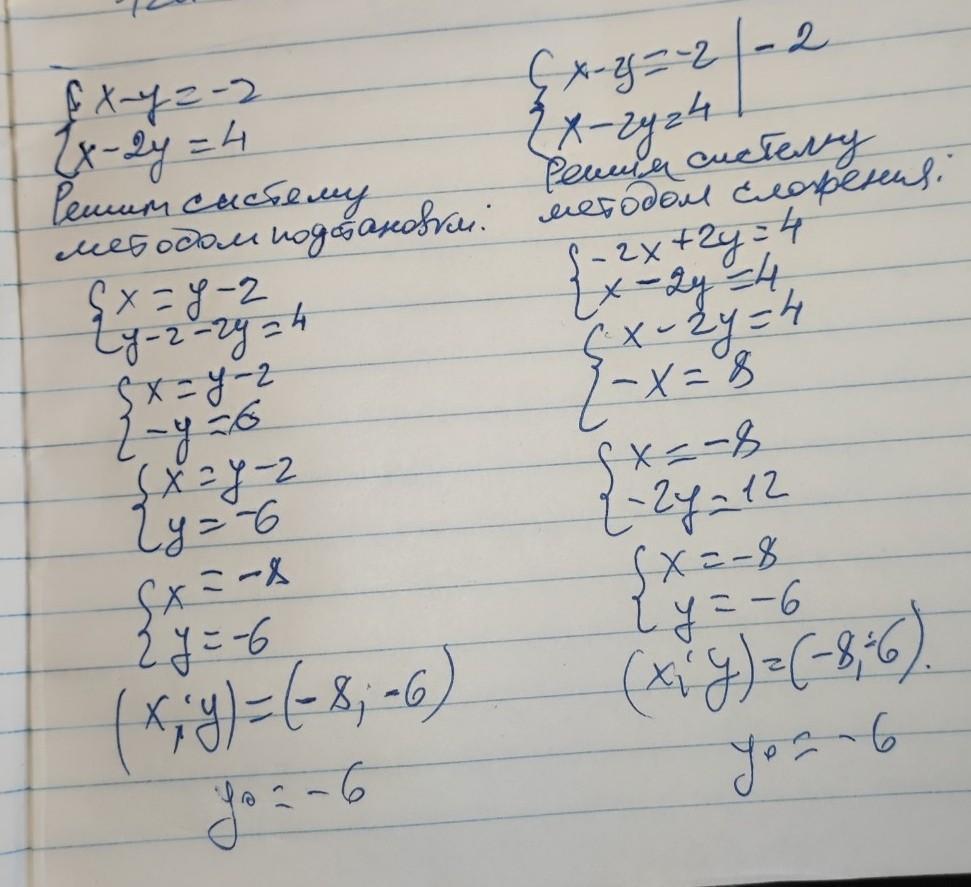 x-y=-2
x-2y=4
Решим систему
методом подстановки:
x=y-2
y-2-2y=4
x=y-2
-y=6
x=y-2
y=-6
x=-8
y=-6
(x;y)=(-8;-6)
y₀=-6
x-y=-2 | -2
x-2y=4
Решим систему
методом сложения:
-2x+2y=4
x-2y=4
x-2y=4
-x=8
x=-8
-2y=12
x=-8
y=-6
(x;y)=(-8;-6).
y₀=-6